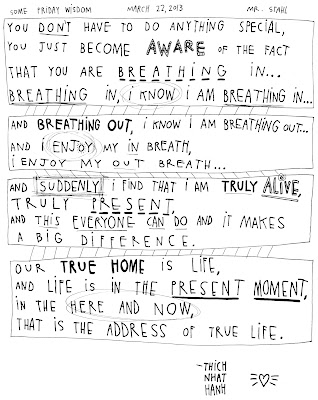 SOME FRIDAY WISDOM MARCH 22, 2013 MR. STAHL
YOU DON'T HAVE TO DO ANYTHING SPECIAL,
YOU JUST BECOME AWARE OF THE FACT
THAT YOU ARE BREATHING IN...
BREATHING IN, i KNOW i AM BREATHING IN...
AND BREATHING OUT, i KNOW I AM BREATHING OUT...
AND i ENJOY MY IN BREATH,
i ENJOY MY OUT BREATH...
AND SUDDENLY i FIND THAT i AM TRULY ALIVE,
TRULY PRESENT,
AND THIS EVERYONE CAN DO AND IT MAKES
A BIG DIFFERENCE.
OUR TRUE HOME IS LIFE,
AND LIFE IS IN THE PRESENT MOMENT,
IN THE HERE AND NOW,
THAT IS THE ADDRESS OF TRUE LIFE.
-THICH
NHAT
HANH